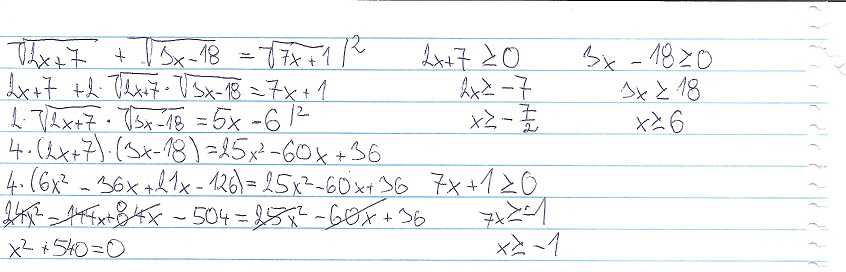 √2x+7 + √3x-18 = √7x+1 /² 2x+7 ≥ 0 3x - 18 ≥ 0
2x+7 + 2·√2x+7 · √3x-18 = 7x+1 2x ≥ -7 3x ≥ 18
2·√2x+7 · √3x-18 = 5x - 6 /² x ≥ -7/2 x ≥ 6
4·(2x+7)·(3x-18) = 25x² - 60x + 36
4·(6x² - 36x + 21x - 126) = 25x² - 60x + 36 7x + 1 ≥ 0
24x² - 144x + 84x - 504 = 25x² - 60x + 36 7x ≥ -1
x² + 540 = 0 x ≥ -1